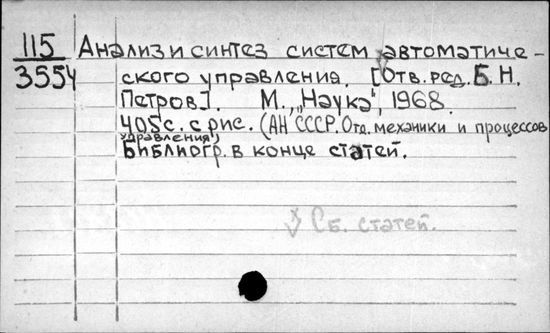 115 Анализ и синтез систем автоматиче-
3554 ского управления. [Отв. ред. Б. Н.
Петров]. М., „Наука", 1968.
405с. с рис. (АН СССР. Отд. механики и процессов
управления)
Библиогр. в конце статей.
Сб. статей.